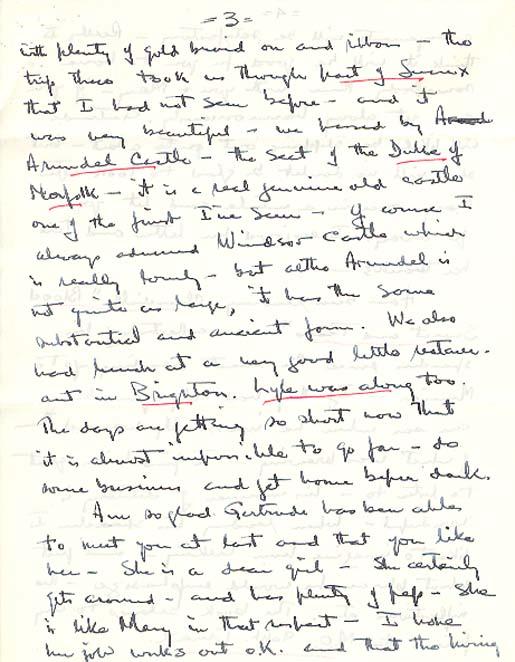 = 3 =
with plenty of gold braid on and ribbon - the
trip there took us through part of Sussex
that I had not seen before - and it
was very beautiful - we passed by
Arundel Castle - the seat of the Duke of
Norfolk - it is a real genuine old castle
one of the finest I've seen - of course I
always admired Windsor Castle which
is really lovely - but altho Arundel is
not quite as large, it has the same
substantial and ancient form. We also
had lunch at a very good little restaur-
ant in Brighton. Lyle was along too.
The days are getting so short now that
it is almost impossible to go far - do
some business and get home before dark.
Am so glad Gertrude has been able
to meet you at last and that you like
her - She is a dear girl - She certainly
gets around - and has plenty of pep - She
is like Mary in that respect - I hope
her job works out O.K. and that the living